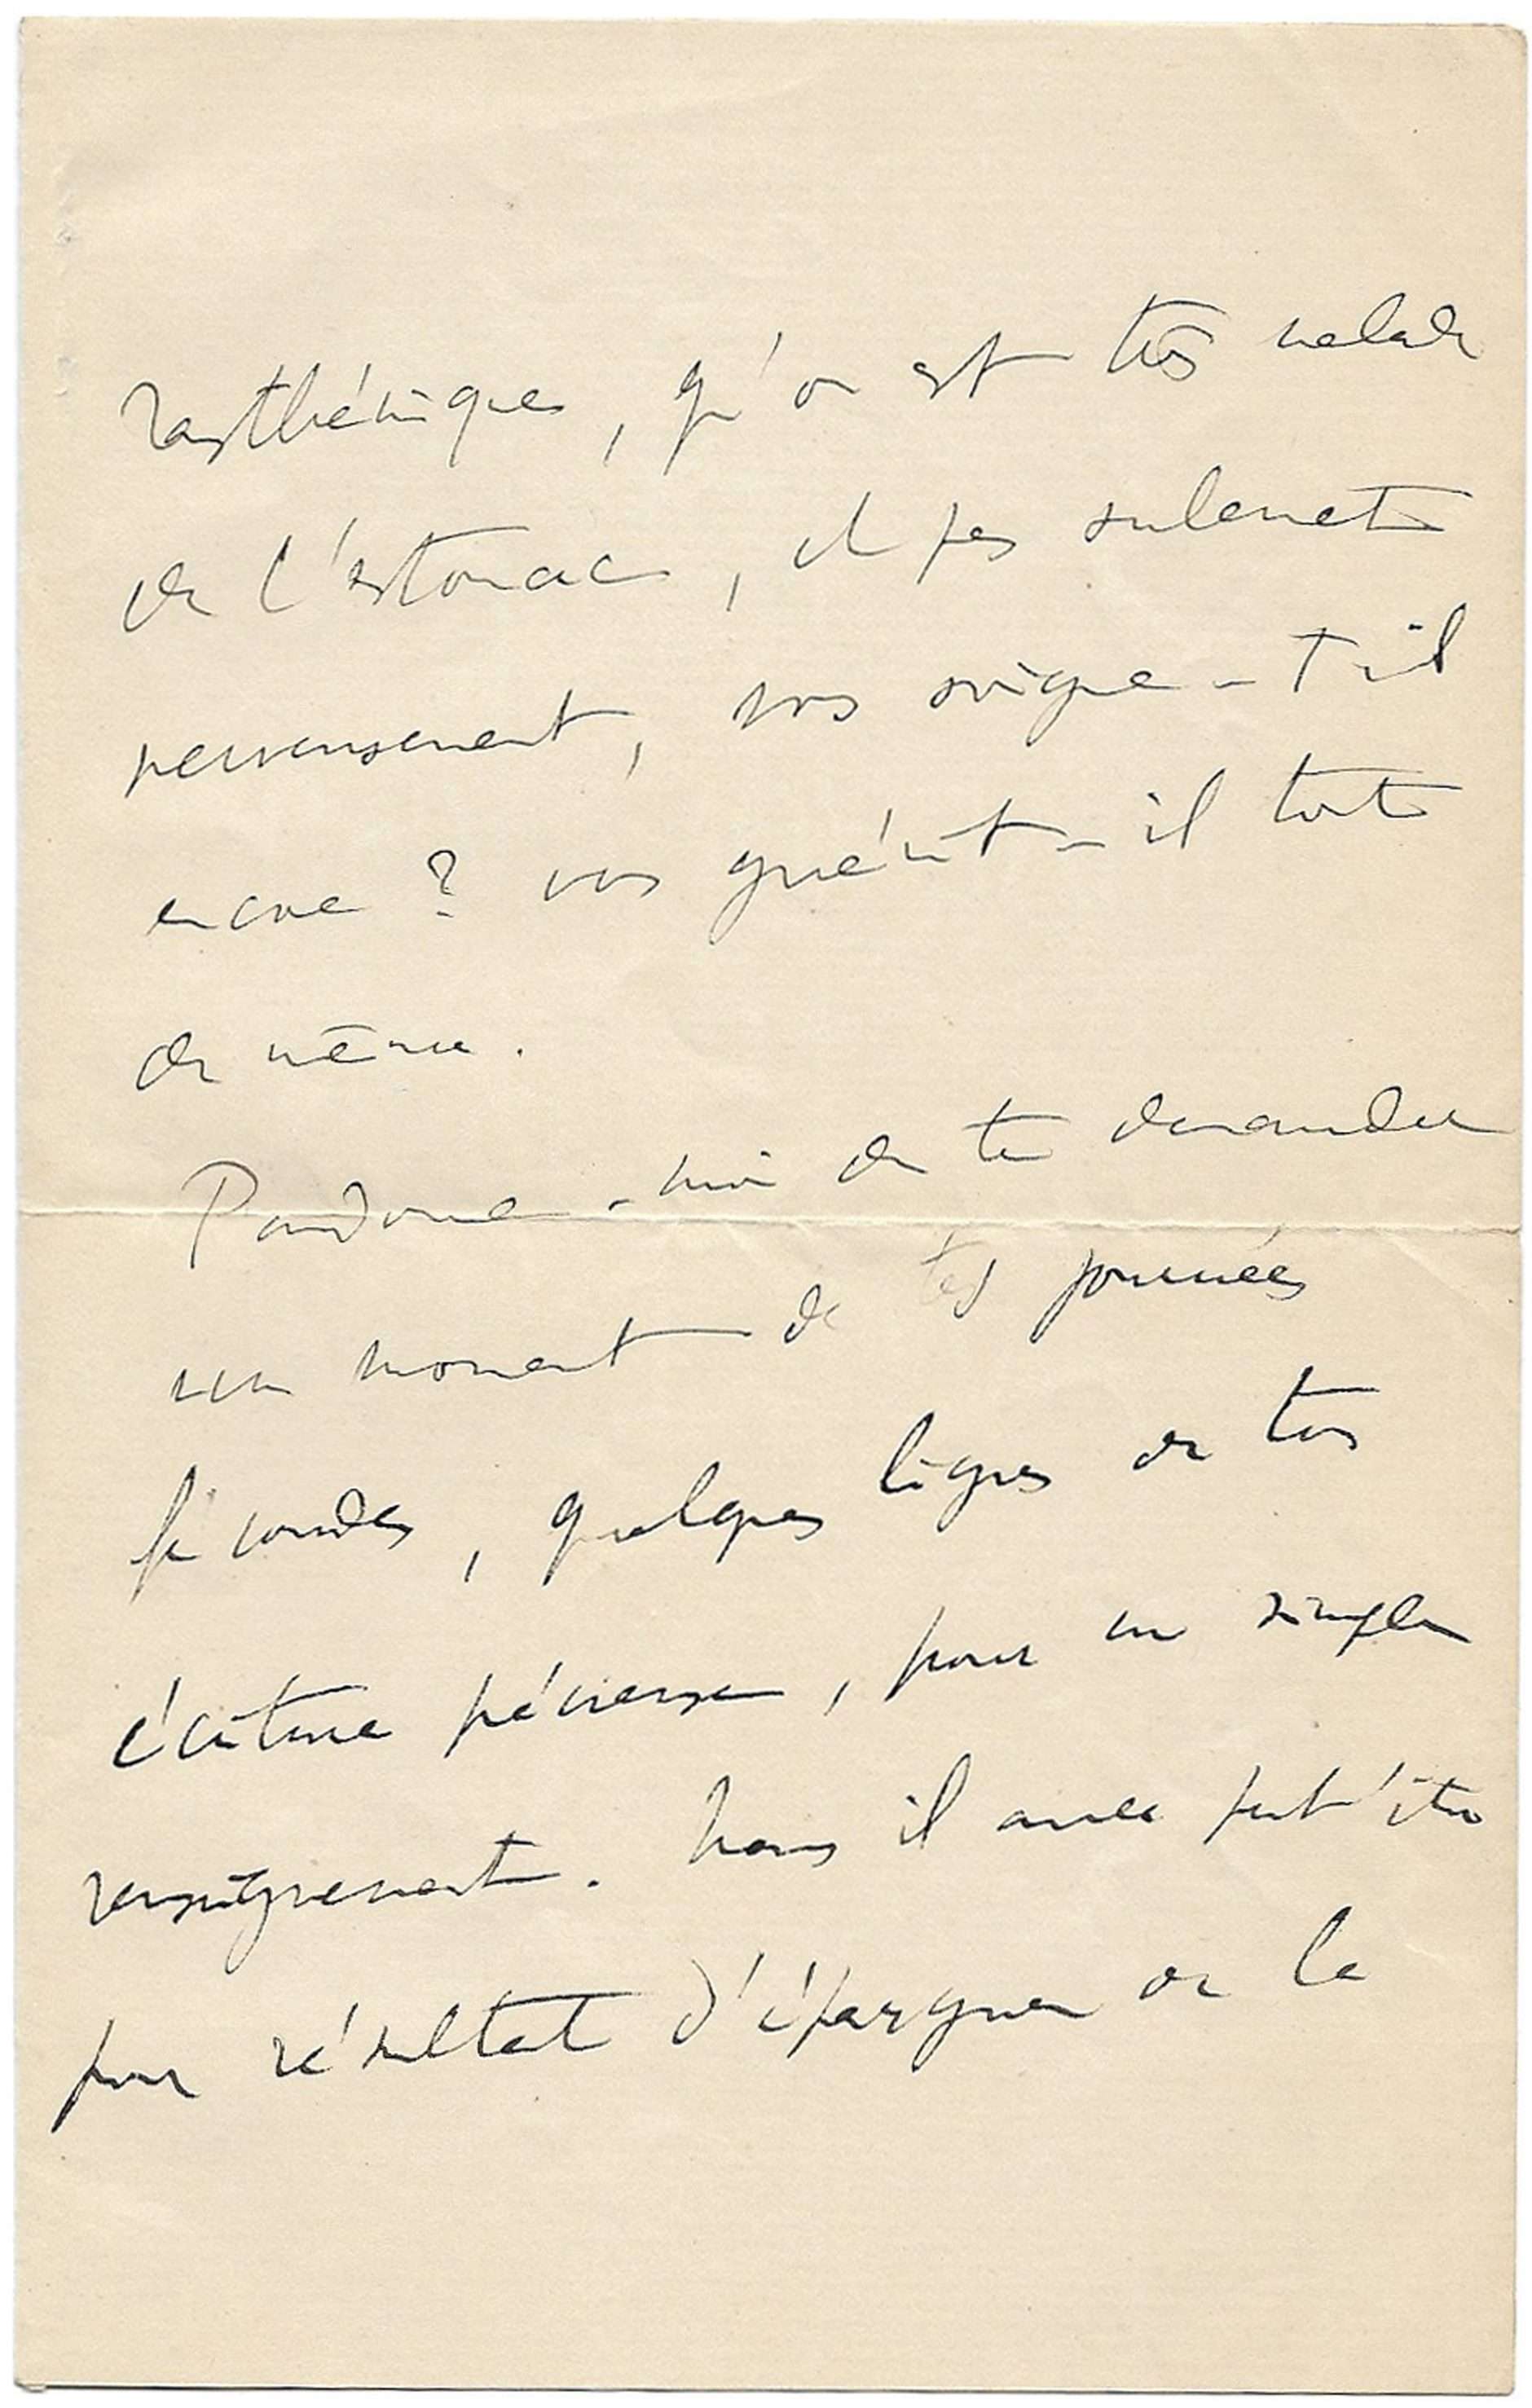 rasthénique, qu'on est très malade
de l'estomac, et pas seulement
nerveusement, vous soigne-t-il
encore ? vous guérit-il tout
de même.
Pardonne-moi de te demander
un moment de tes journées
fécondes, quelques lignes de ton
écriture précieuse, pour un simple
renseignement. Mais il aura peut'être
pour résultat d'épargner de la